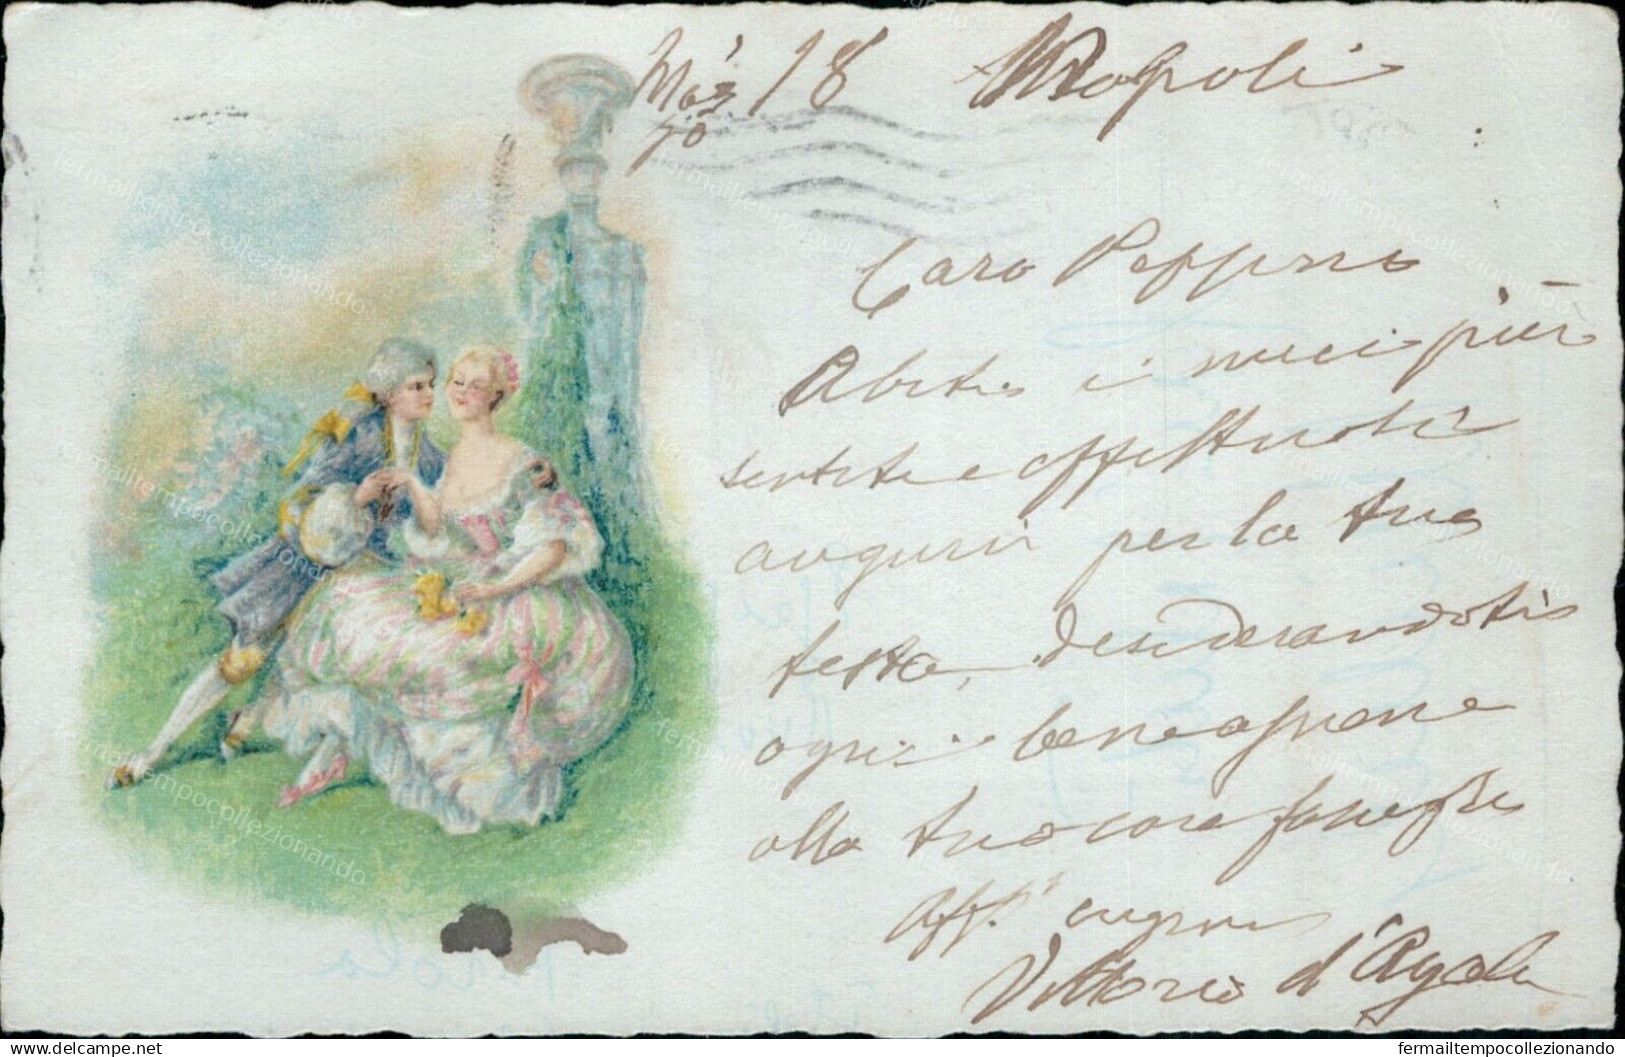 Marzo 18 Napoli
Caro Peppino
Abiti i miei più
sentiti e affettuosi
auguri per la tua
festa, desiderandoti
ogni bene assieme
alla tua cara famiglia
Aff. auguri
Vittorio d'
https://www.delcampe.net
fermailtempocollezionando